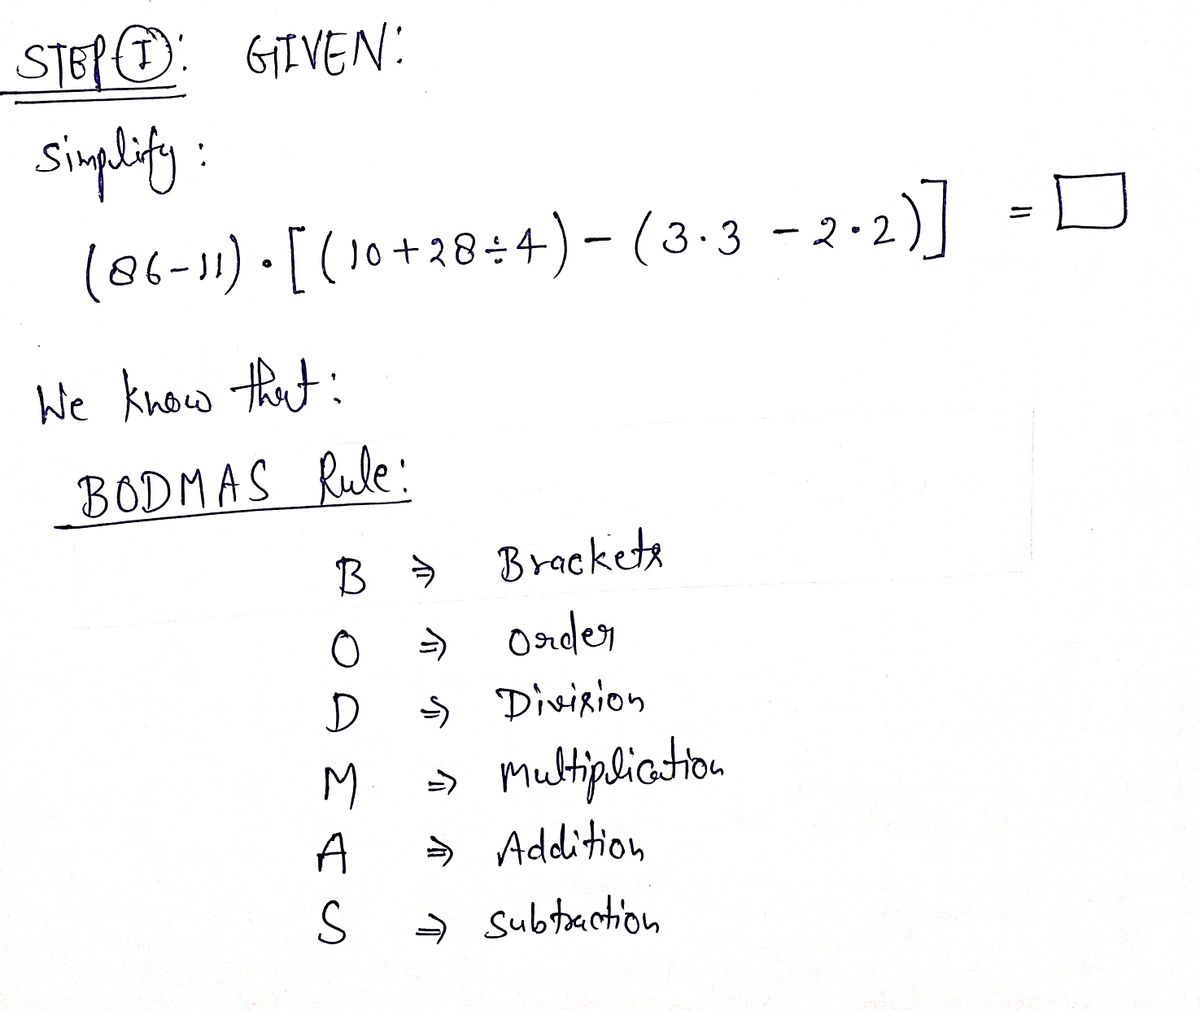 STEP I: GIVEN:
Simplify:
(86-11)·[(10+28÷4)-(3·3-2·2)] = □
We know that:
BODMAS Rule:
B ⇒ Brackets
O ⇒ Order
D ⇒ Division
M ⇒ Multiplication
A ⇒ Addition
S ⇒ Subtraction